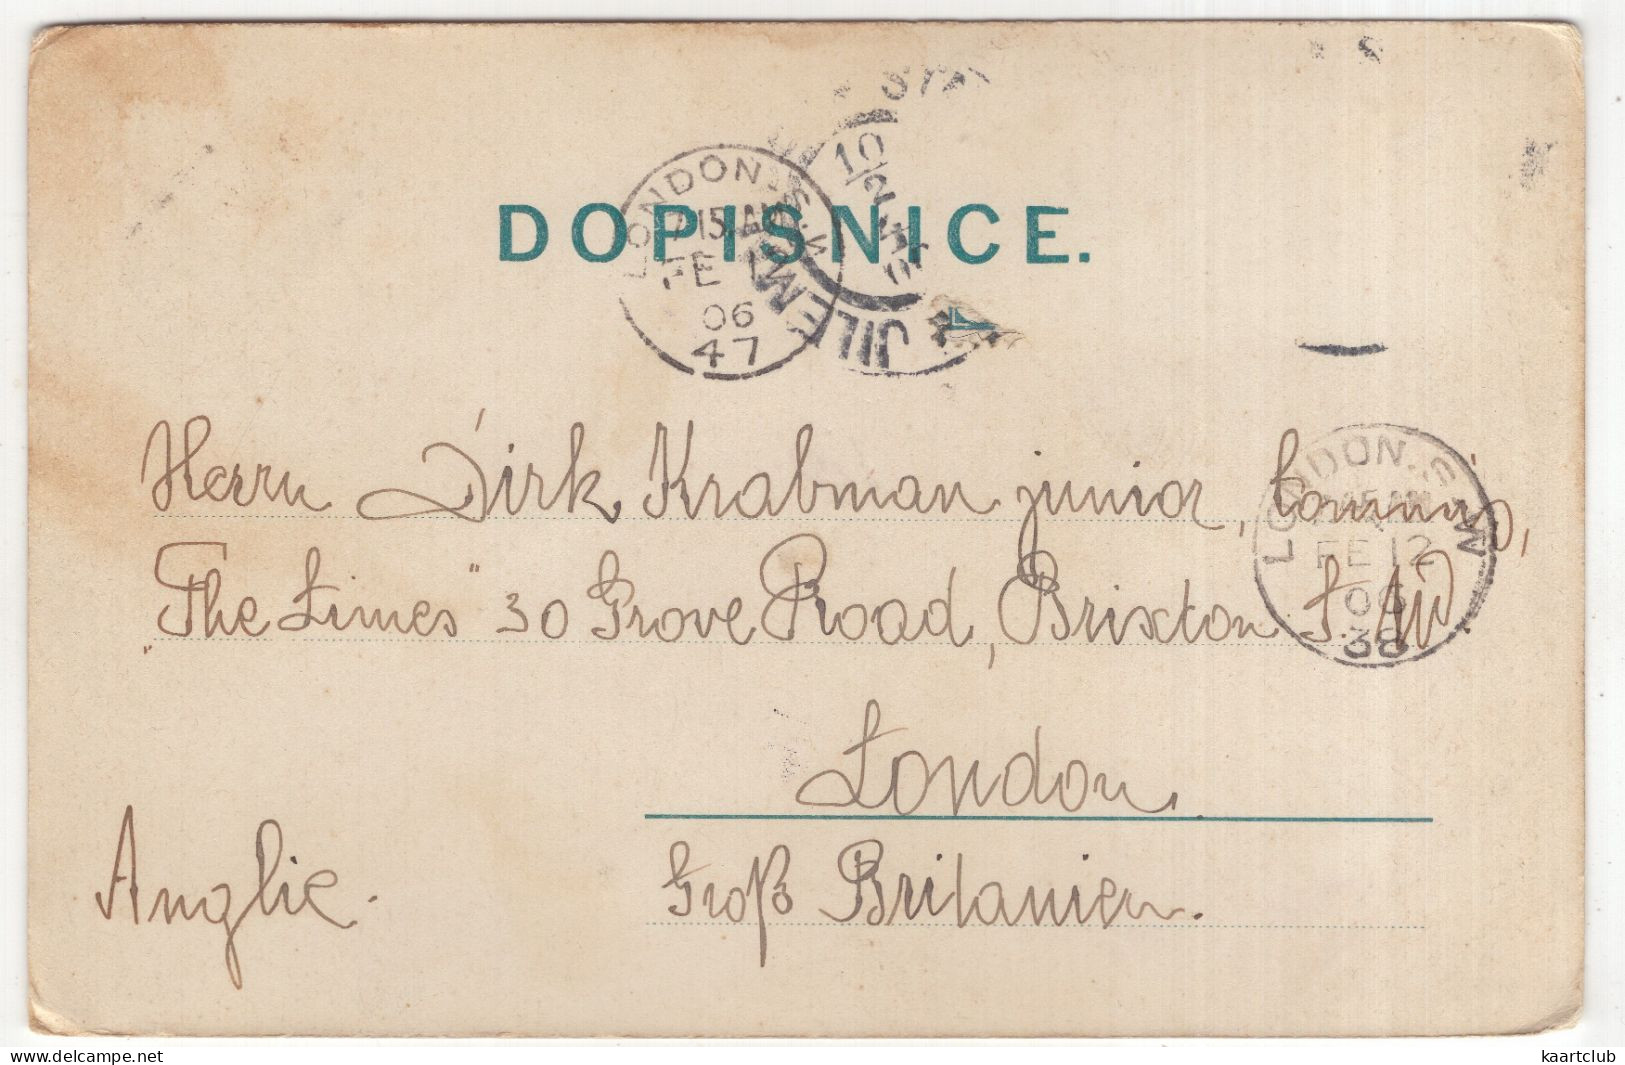 DOPISNICE.
LONDON.S.W
7 15 AM
FE 1
06
47
10/2
JILEM
Herrn Dirk Krabman junior,
"The Times" 30 Grove Road, Brixton S.W.
LONDON.S.W
FE 12
06
38
London.
Anglie.
Groß Britanien.
delcampe.net
kaartclub